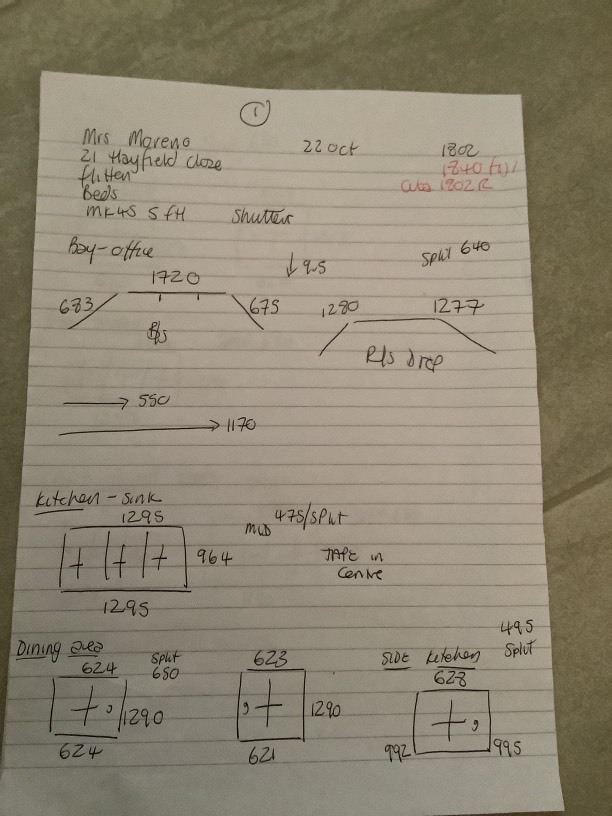 1
Mrs Moreno
22 Oct
1802
21 Hayfield Close
1840
Flitten
1802 R
Beds
MK45 5FH
Shutters
Bay-office
↓ 905
Split 640
1720
683
675
1280
1277
R/S
R/S Drop
→ 550
→ 1170
Kitchen - Sink
1295
Mid 475/Split
964
TAPE in
Centre
1295
495
Split
Dining area
Split
650
624
1290
624
623
1290
621
SIDE Kitchen
628
992
995